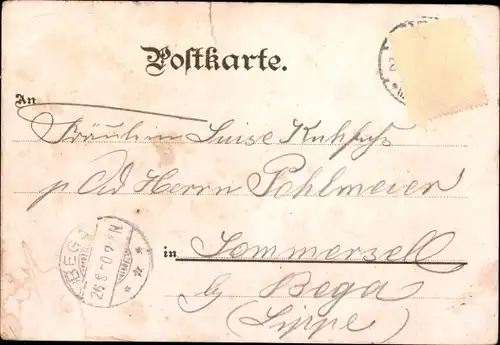 Postkarte.
An
Fräulein Luise Kuhfuhs
p Ad Herrn Pohlmeier
in Sommersell
by Bega
(Lippe)
BEGA
26 8 02